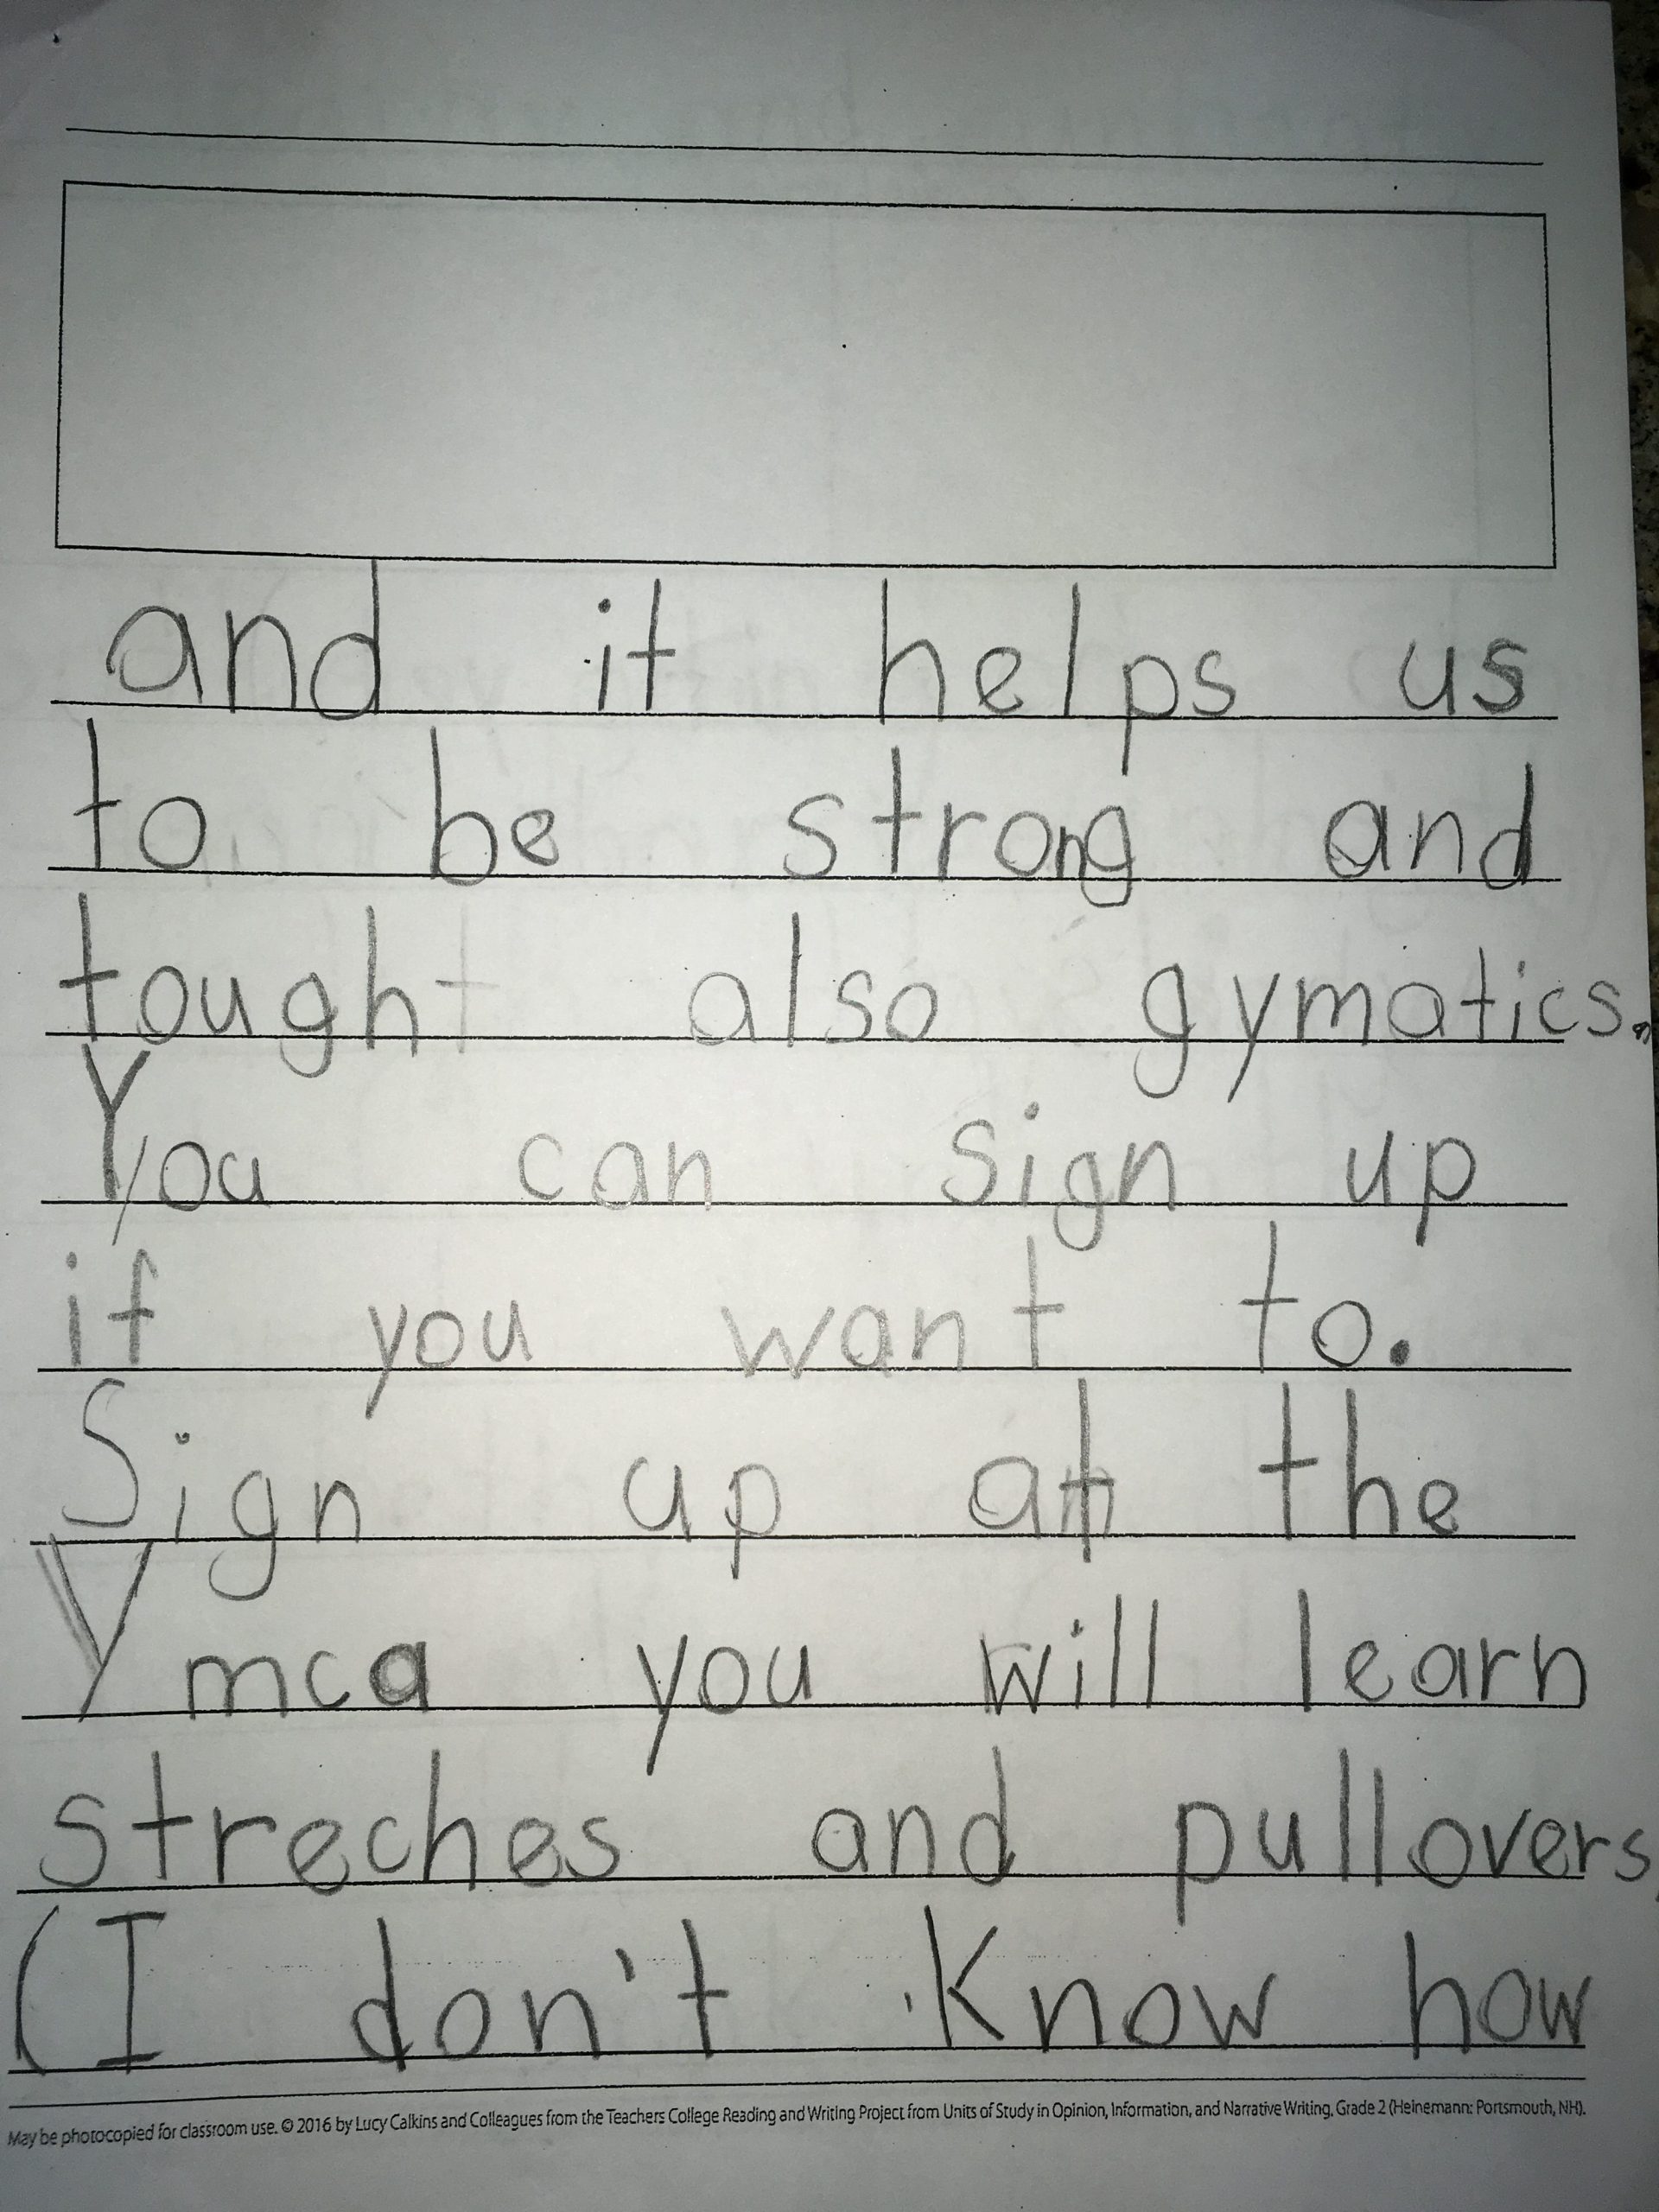 and it helps us
to be strong and
tought also gymatics.
You can sign up
if you want to.
Sign up at the
Ymca you will learn
streches and pullovers,
(I don't Know how
May be photocopied for classroom use. © 2016 by Lucy Calkins and Colleagues from the Teachers College Reading and Writing Project from Units of Study in Opinion, Information, and Narrative Writing, Grade 2 (Heinemann: Portsmouth, NH).